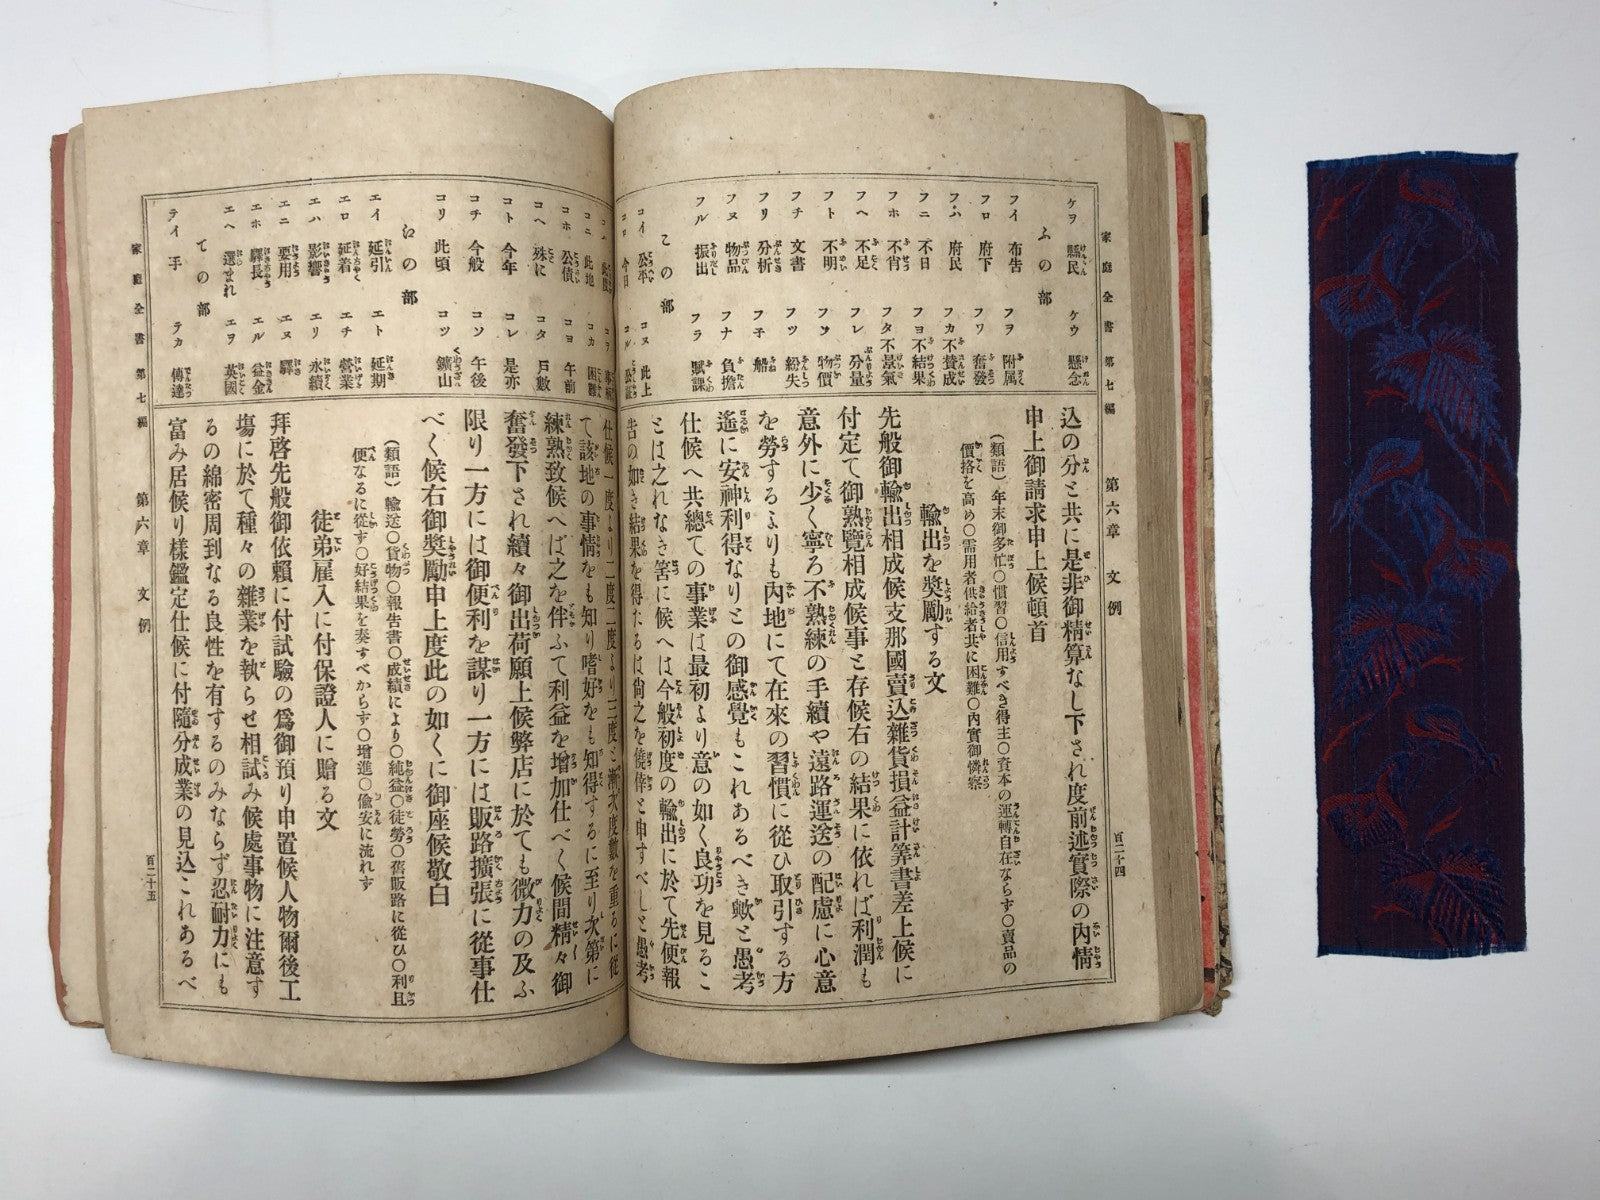 家庭全書 第七編 第六章 文例 百二十四
ケヲ 縣民 ケウ 懸念
ふの部
フイ 布告 フヲ 附属
フロ 府下 フワ 奮發
フハ 府民 フカ 不賛成
フニ 不日 フヨ 不結果
フホ 不肖 フタ 不景氣
フヘ 不足 フレ 分量
フト 不明 フソ 物價
フチ 文書 フツ 紛失
フリ 分析 フ子 船
フヌ 物品 フナ 負擔
フル 振出 フラ 賦課
この部
コイ 公平 コヌ 此上
コロ 今日 コル 公證
込の分と共に是非御精算なし下され度前述實際の內情
申上御請求申上候頓首
(類語)年末御多忙○慣習○信用すべき得主○資本の運轉自在ならず○賣品の
價格を高め○需用者供給者共に困難○內實御憐察
輸出を奬勵する文
先般御輸出相成候支那國賣込雜貨損益計筭書差上候に
付定て御熟覽相成候事と存候右の結果に依れば利潤も
意外に少く寧ろ不熟練の手續や遠路運送の配慮に心意
を勞するよりも內地にて在來の習慣に從ひ取引する方
遙に安神利得なりとの御感覺もこれあるべき歟と愚考
仕候へ共總ての事業は最初より意の如く良功を見るこ
とは之れなき筈に候へは今般初度の輸出に於て先便報
吿の如き結果を得たるは尙之を僥倖と申すべしと愚考
コニ 此地 コカ 困難
コホ 公債 コヨ 午前
コヘ 殊に コタ 戸數
コト 今年 コレ 是亦
コチ 今般 コソ 午後
コリ 此頃 コツ 鑛山
えの部
エイ 延引 エト 延期
エロ 延着 エチ 營業
エハ 影響 エリ 永續
エニ 要用 エヌ 驛
エホ 驛長 エル 益金
エヘ 選まれ エヲ 英國
ての部
テイ 手 テカ 傳達
仕候一度より二度二度より三度と漸次度數を重るに從
て該地の事情をも知り嗜好をも知得するに至り次第に
練熟致候へば之を伴ふて利益を增加仕べく候間精々御
奮發下され續々御出荷願上候弊店に於ても微力の及ふ
限り一方には御便利を謀り一方には販路擴張に從事仕
べく候右御奬勵申上度此の如くに御座候敬白
(類語)輸送○貨物○報告書○成績により○純益○徒勞○舊販路に從ひ○利且
便なるに從す○好結果を奏すべからす○增進○偸安に流れず
徒弟雇入に付保證人に贈る文
拜啓先般御依賴に付試驗の爲御預り申置候人物爾後工
塲に於て種々の雜業を執らせ相試み候處事物に注意す
るの綿密周到なる良性を有するのみならず忍耐力にも
富み居候り樣鑑定仕候に付隨分成業の見込これあるべ
家庭全書 第七編 第六章 文例 百二十五